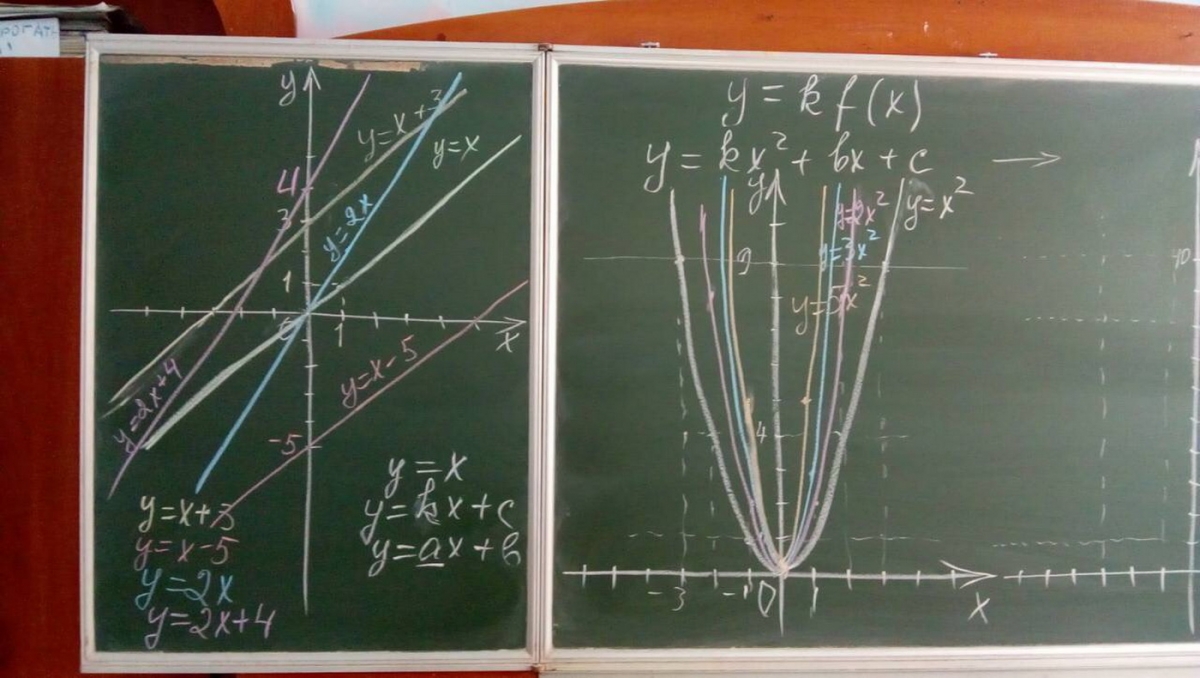 РОГАТН
y
y=x+3
y=x
4
3
y=2x
1
0
1
x
y=x-5
y=2x+4
-5
y=x
y=kx+c
y=ax+b
y=x+3
y=x-5
y=2x
y=2x+4
y=kf(x)
y=kx²+bx+c →
y
y=2x²
y=x²
y=3x²
9
y=5x²
4
-3
-1
0
1
x
10